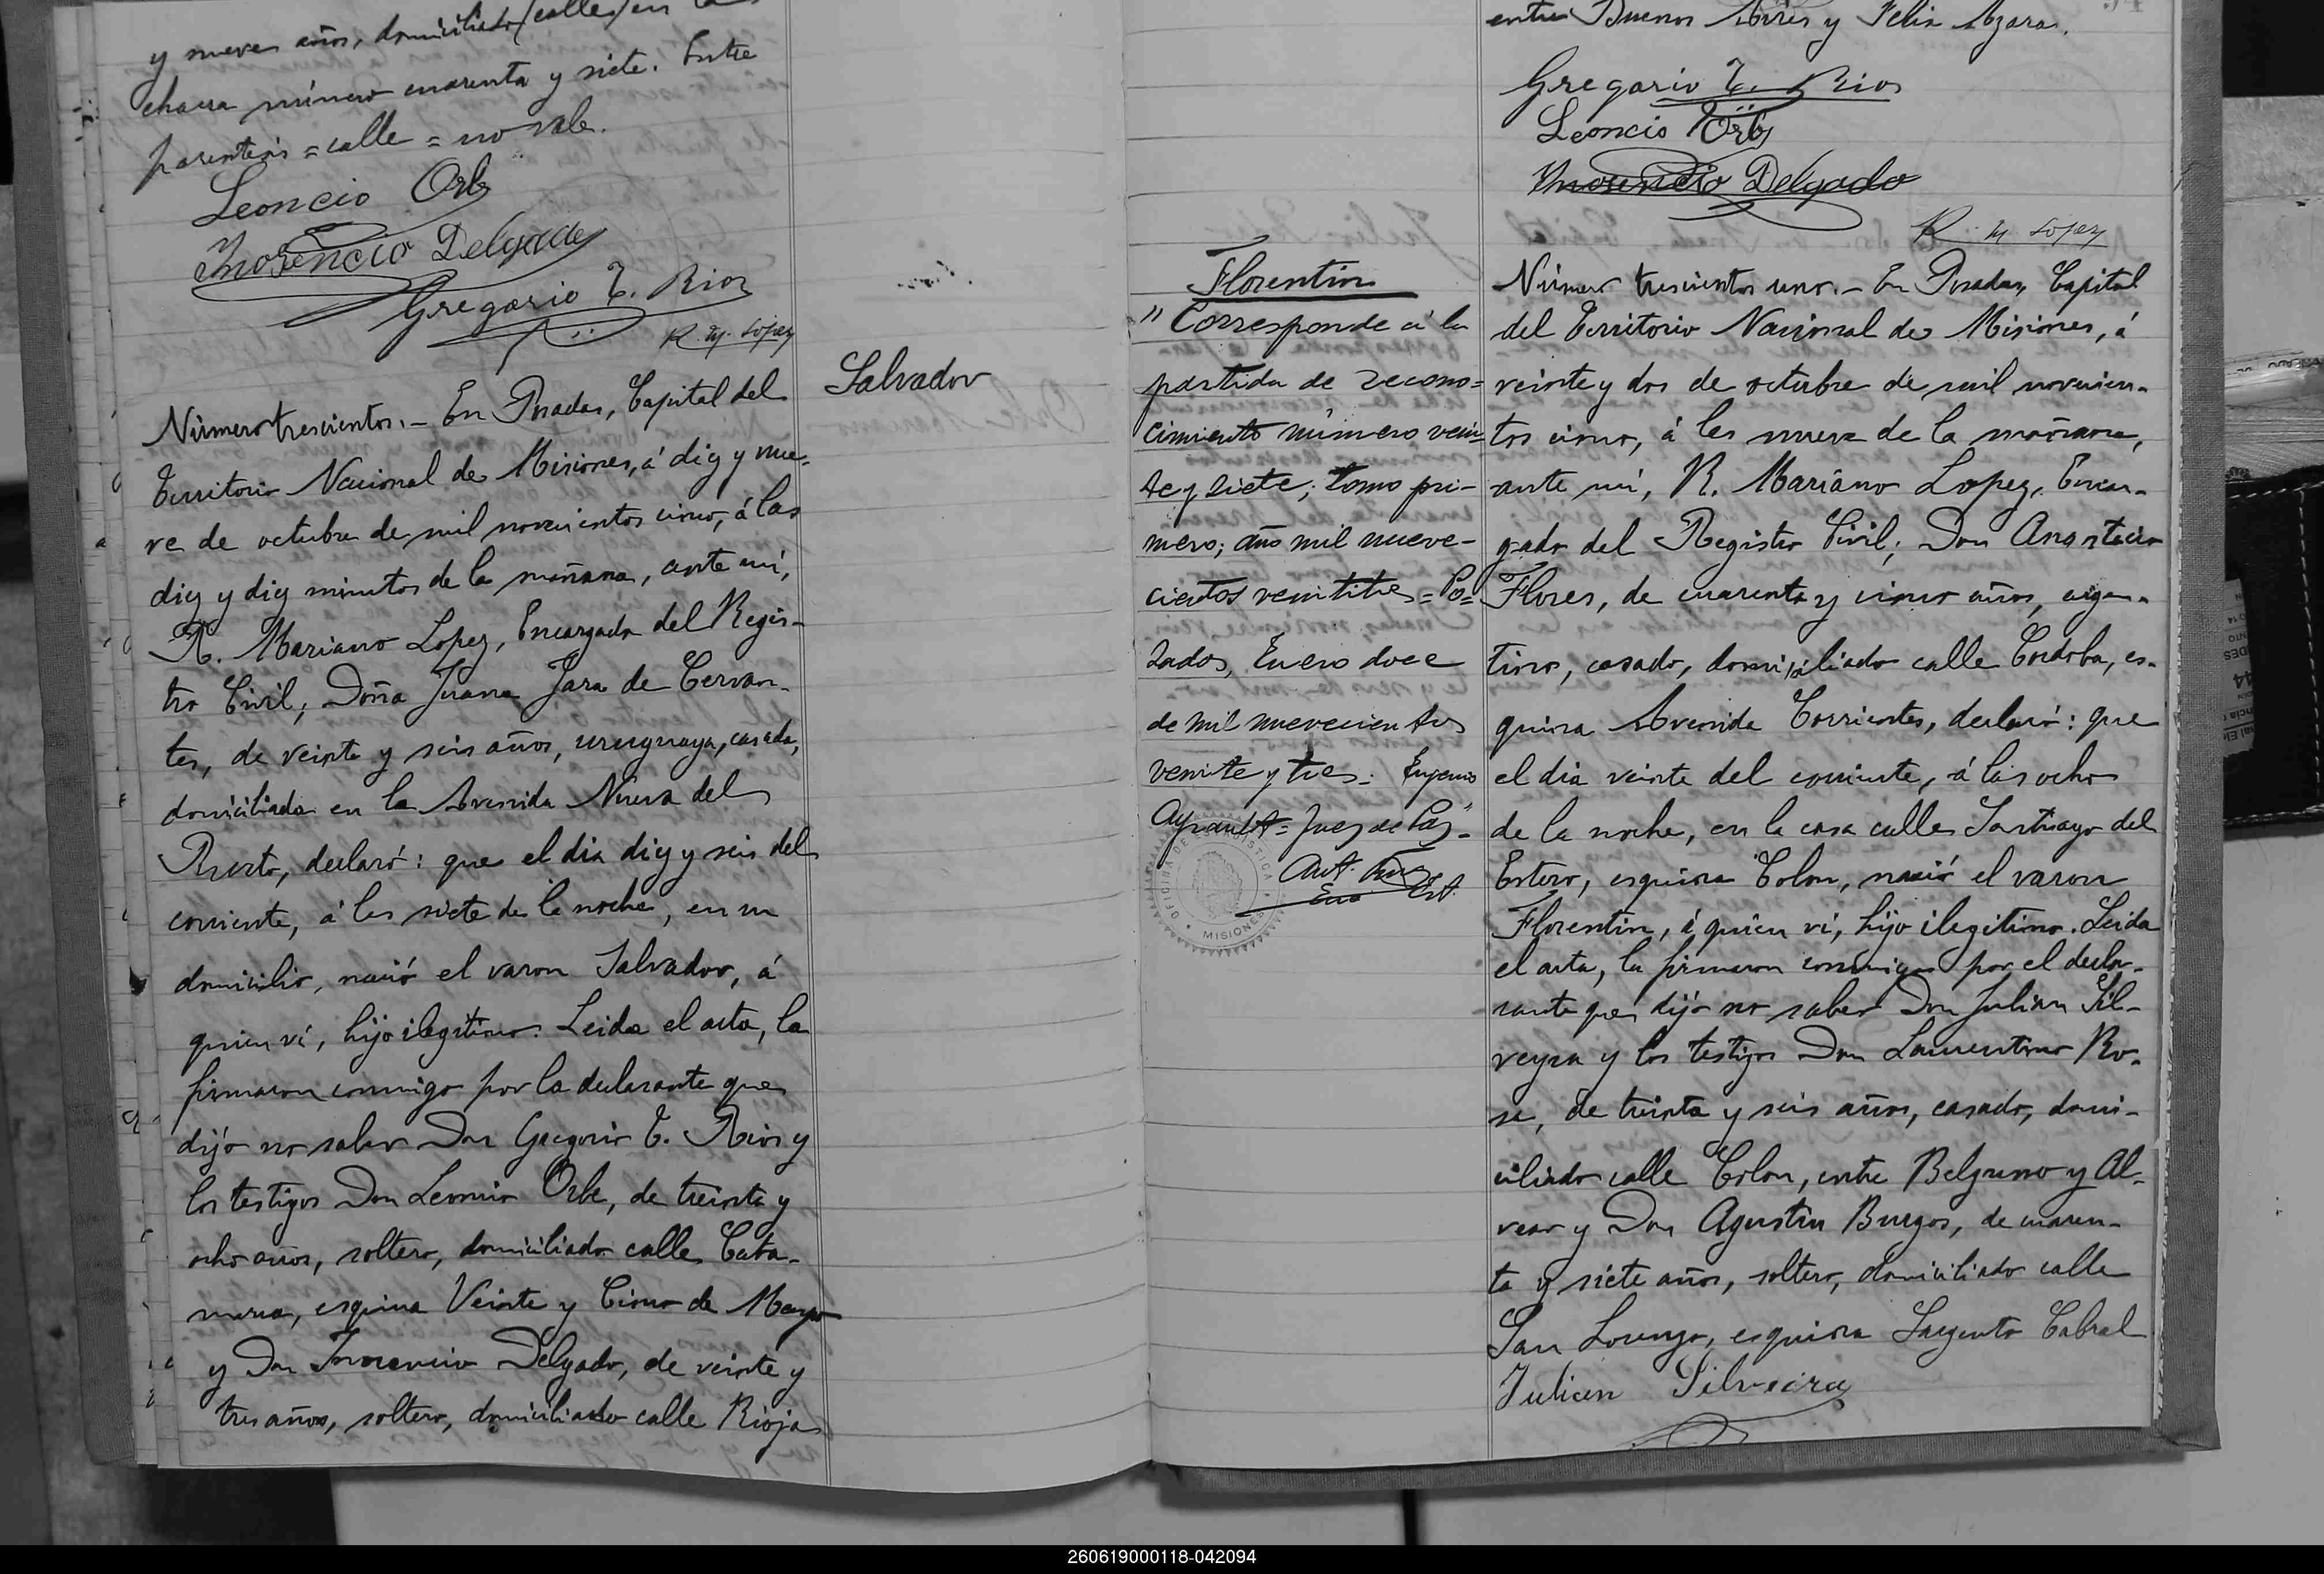 y nueve años, domiciliado (calle) en la
chacra número cuarenta y siete. Entre
parentesis = calle = no vale.
Leoncio Orbe
Inosencio Delgado
Gregorio T. Rios
R. M. Lopez
Número trescientos. – En Posadas, Capital del
Territorio Nacional de Misiones, á diez y nue-
ve de octubre de mil novecientos cinco, á las
diez y diez minutos de la mañana, ante mí,
R. Mariano Lopez, Encargado del Regis-
tro Civil; Doña Juana Jara de Cervan-
tes, de veinte y seis años, uruguaya, casada,
domiciliada en la Avenida Nueva del
Puerto, declaró: que el dia diez y seis del
corriente, á las siete de la noche, en su
domicilio, nació el varon Salvador, á
quien ví, hijo ilegitimo. Leida el acta, la
firmaron conmigo por la declarante que
dijó no saber Don Gregorio T. Rios y
los testigos Don Leoncio Orbe, de treinta y
ocho años, soltero, domiciliado calle Cata-
marca, esquina Veinte y Cinco de Mayo
y Don Inocencio Delgado, de veinte y
tres años, soltero, domiciliado calle Rioja
Salvador
entre Buenos Aires y Felix Azara.
Gregorio T. Rios
Leoncio Orbe
Inosencio Delgado
R. M. Lopez
Florentin
"Corresponde á la
partida de recono=
cimiento número vein
te y siete; tomo pri-
mero; año mil nueve-
cientos veintitres = Po=
sadas, Enero doce
de mil novecientos
veinte y tres. Eugenio
Ayrault = Juez de Paz"
OFICINA DE ESTADISTICA
MISIONES
Número trescientos uno. – En Posadas, Capital
del Territorio Nacional de Misiones, á
veinte y dos de octubre de mil novecien-
tos cinco, á las nueve de la mañana,
ante mí, R. Mariano Lopez, Encar-
gado del Registro Civil; Don Anastacio
Flores, de cuarenta y cinco años, argen-
tino, casado, domiciliado calle Cordoba, es-
quina Avenida Corrientes, declaró: que
el dia veinte del corriente, á las ocho
de la noche, en la casa calle Santiago del
Estero, esquina Colon, nació el varon
Florentin, á quien ví, hijo ilegitimo. Leida
el acta, la firmaron conmigo por el decla-
rante que dijó no saber Don Julian Sil-
veyra y los testigos Don Laurentino Ro-
se, de treinta y seis años, casado, domi-
ciliado calle Colon, entre Belgrano y Al-
vear y Don Agustin Burgos, de cuaren-
ta y siete años, soltero, domiciliado calle
San Lorenzo, esquina Sargento Cabral
Julian Silveira
260619000118-042094